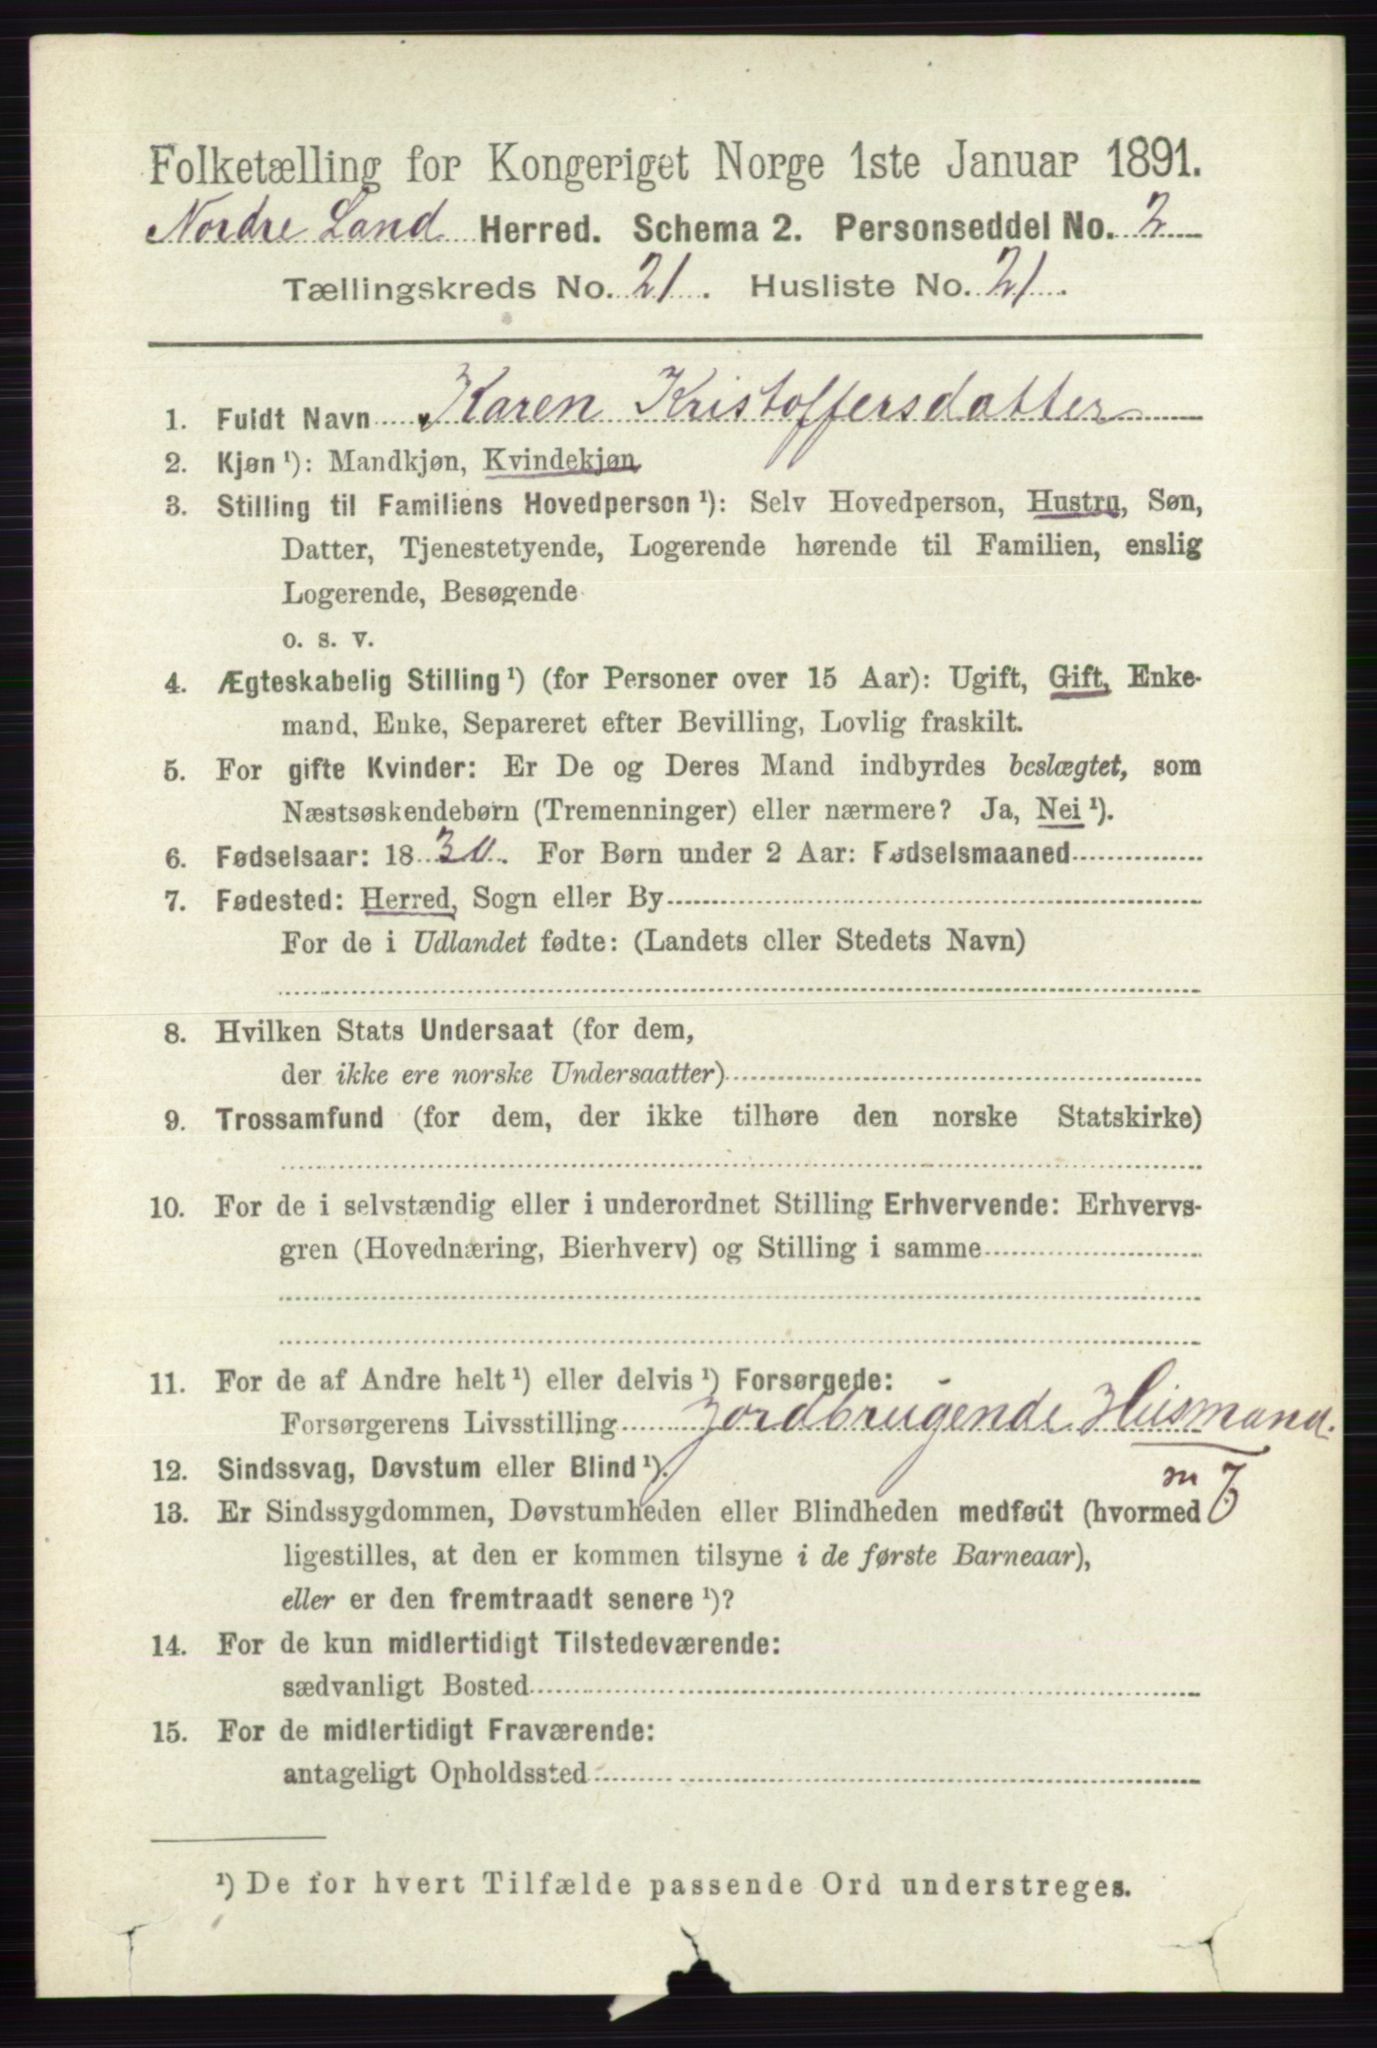 Folketælling for Kongeriget Norge 1ste Januar 1891.
Nordre Land Herred. Schema 2. Personseddel No. 2
Tællingskreds No. 21. Husliste No. 21.
1. Fuldt Navn Karen Kristoffersdatter
2. Kjøn ¹): Mandkjøn, Kvindekjøn
3. Stilling til Familiens Hovedperson ¹): Selv Hovedperson, Hustru, Søn,
Datter, Tjenestetyende, Logerende hørende til Familien, enslig
Logerende, Besøgende
o. s. v.
4. Ægteskabelig Stilling ¹) (for Personer over 15 Aar): Ugift, Gift, Enke-
mand, Enke, Separeret efter Bevilling, Lovlig fraskilt.
5. For gifte Kvinder: Er De og Deres Mand indbyrdes beslægtet, som
Næstsøskendebørn (Tremenninger) eller nærmere? Ja, Nei ¹).
6. Fødselsaar: 1830. For Børn under 2 Aar: Fødselsmaaned
7. Fødested: Herred, Sogn eller By
For de i Udlandet fødte: (Landets eller Stedets Navn)
8. Hvilken Stats Undersaat (for dem,
der ikke ere norske Undersaatter)
9. Trossamfund (for dem, der ikke tilhøre den norske Statskirke)
10. For de i selvstændig eller i underordnet Stilling Erhvervende: Erhvervs-
gren (Hovednæring, Bierhverv) og Stilling i samme
11. For de af Andre helt ¹) eller delvis ¹) Forsørgede:
Forsørgerens Livsstilling Jordbrugende Husmand.
12. Sindssvag, Døvstum eller Blind ¹). m J
13. Er Sindssygdommen, Døvstumheden eller Blindheden medfødt (hvormed
ligestilles, at den er kommen tilsyne i de første Barneaar),
eller er den fremtraadt senere ¹)?
14. For de kun midlertidigt Tilstedeværende:
sædvanligt Bosted
15. For de midlertidigt Fraværende:
antageligt Opholdssted
¹) De for hvert Tilfælde passende Ord understreges.